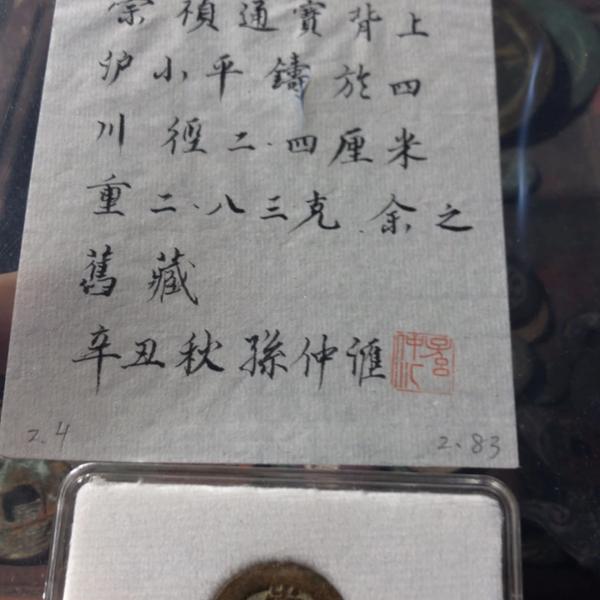 崇禎通寳背上
炉小平鑄於四
川徑二.四厘米
重二.八三克.余之
舊藏
辛丑秋孫仲匯
2.4
2.83